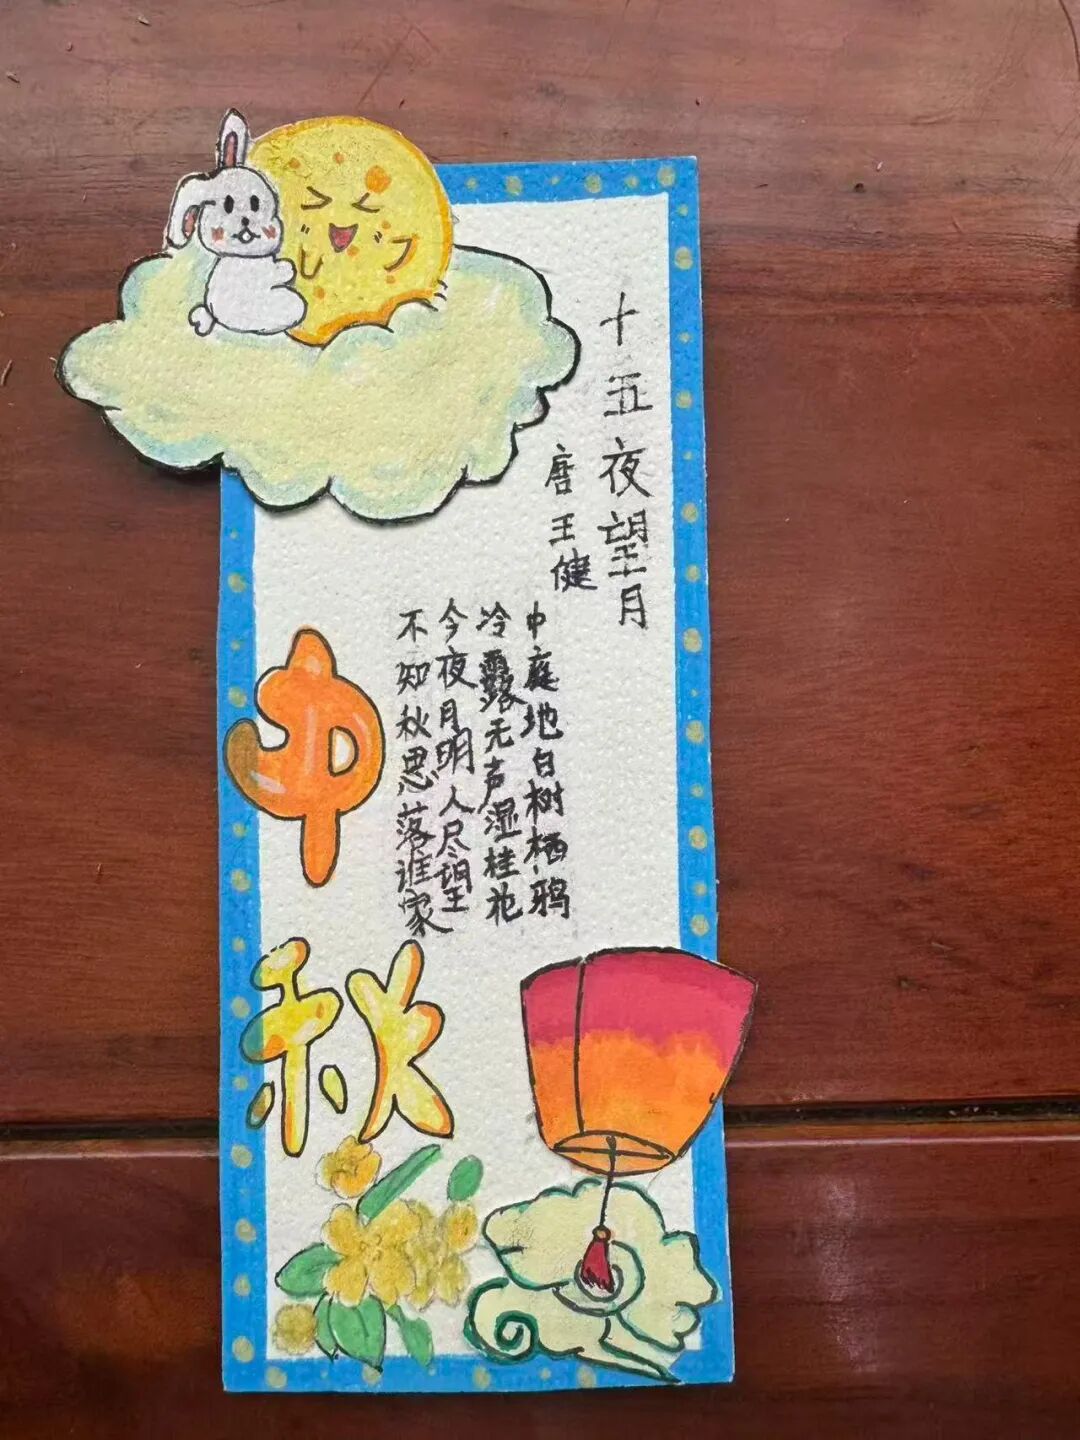 十五夜望月
唐王健
中庭地白树栖鸦
冷露无声湿桂花
今夜月明人尽望
不知秋思落谁家
中秋